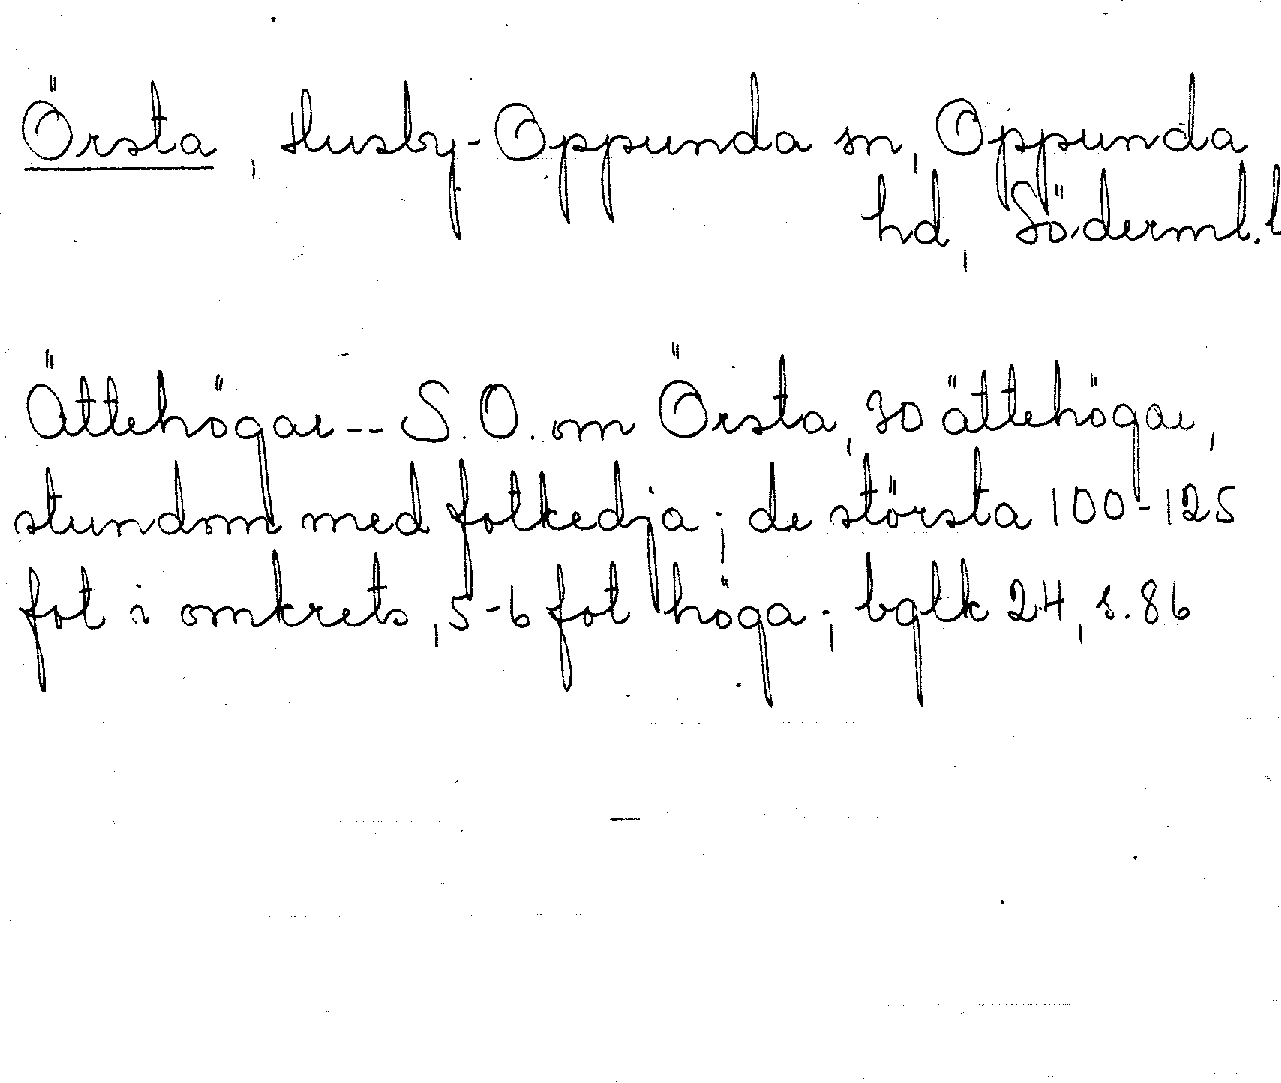 Örsta, Husby-Oppunda sn, Oppunda
hd, Söderml.l
Ättehögar -- S.O. om Örsta, 30 ättehögar,
stundom med fotkedja; de största 100-125
fot i omkrets, 5-6 fot höga; bglk 24, s. 86